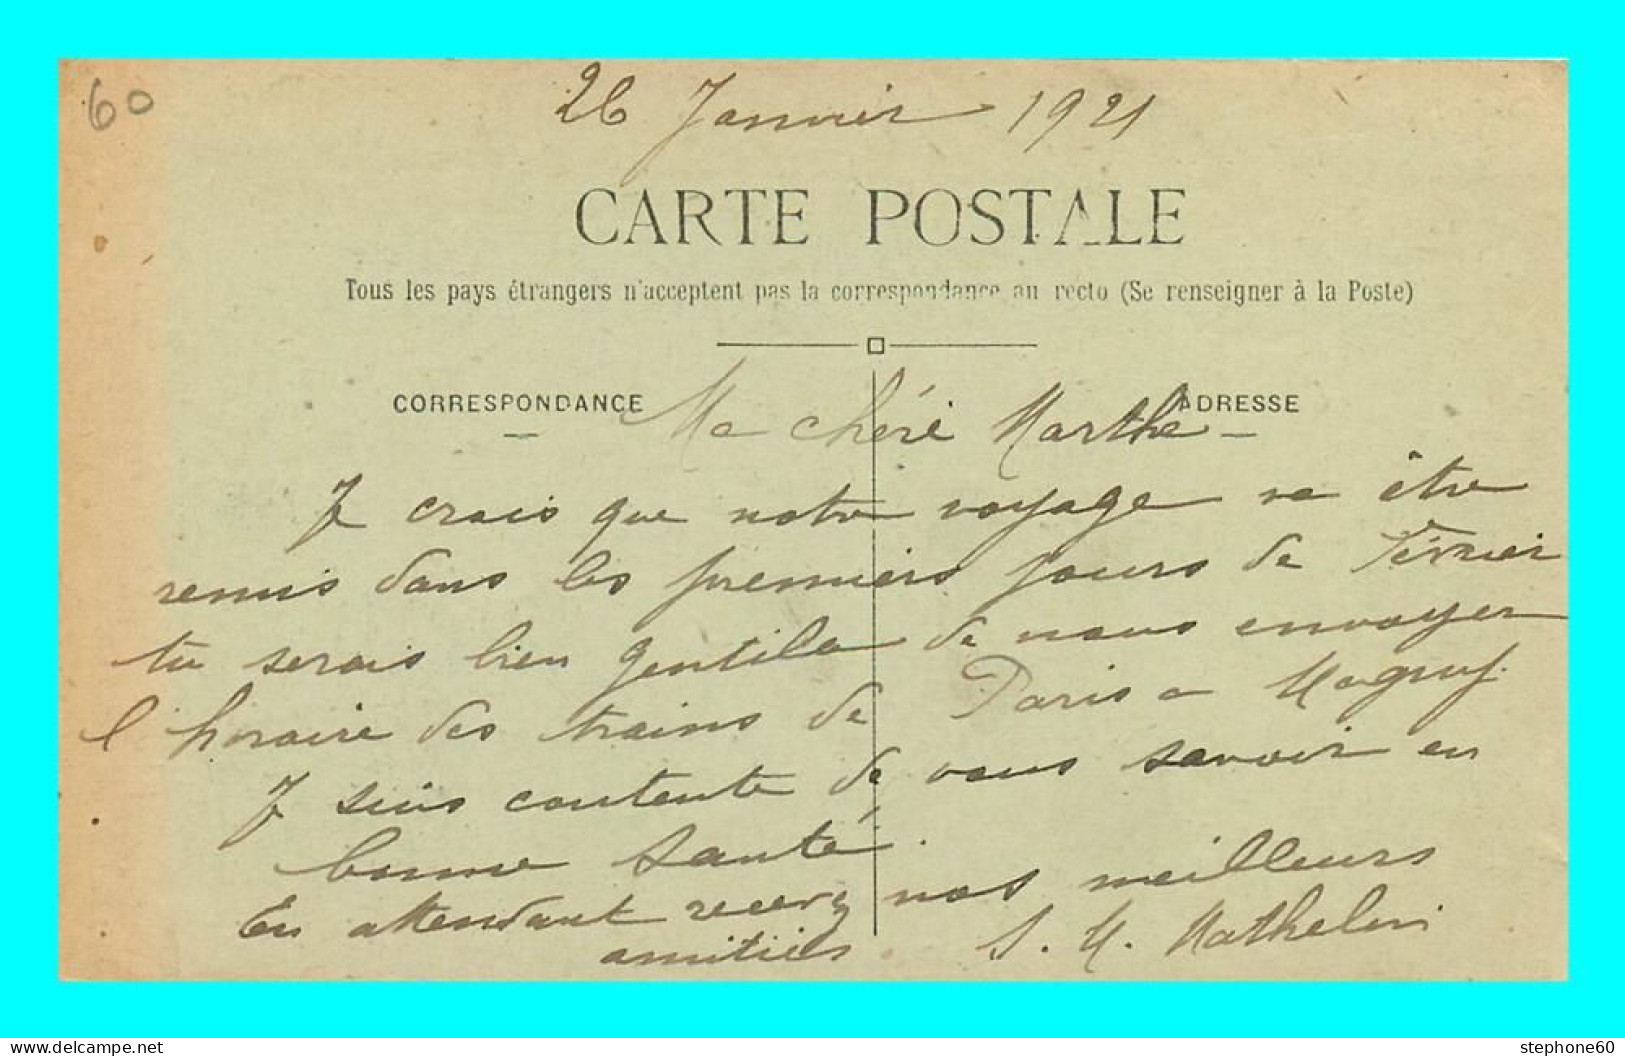 60
26 Janvier 1921
CARTE POSTALE
Tous les pays étrangers n'acceptent pas la correspondance au recto (Se renseigner à la Poste)
CORRESPONDANCE ADRESSE
Ma chéri Marthe
Je crois que notre voyage va être
remis dans les premiers jours de Février
tu serais bien gentille de nous envoyer
l'horaire des trains de Paris a Magny.
Je suis contente de vous savoir en
bonne santé.
En attendant recevez nos meilleurs
amitiés S. M. Mathelin
www.delcampe.net
stephone60